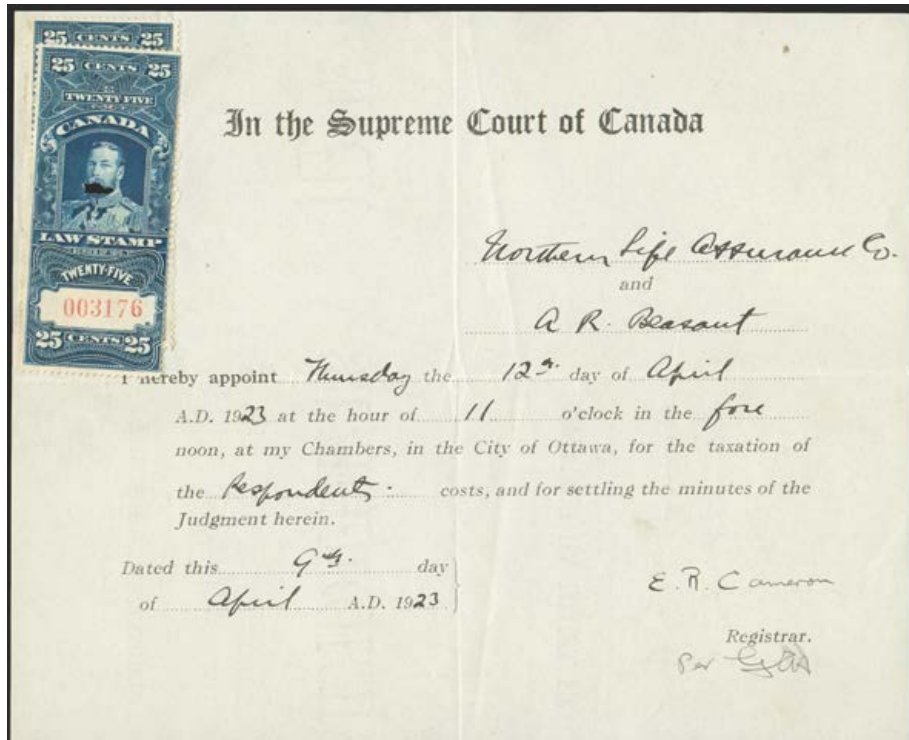 25 CENTS 25
25 CENTS 25
TWENTY FIVE
CANADA
LAW STAMP
TWENTY-FIVE
003176
25 CENTS 25
In the Supreme Court of Canada
Northern Life Assurance Co.
and
A R. Beasant
I hereby appoint Thursday the 12th day of April
A.D. 1923 at the hour of 11 o'clock in the fore
noon, at my Chambers, in the City of Ottawa, for the taxation of
the Respondents costs, and for settling the minutes of the
Judgment herein.
Dated this 9th day
of April A.D. 1923
E. R. Cameron
Registrar.
Per